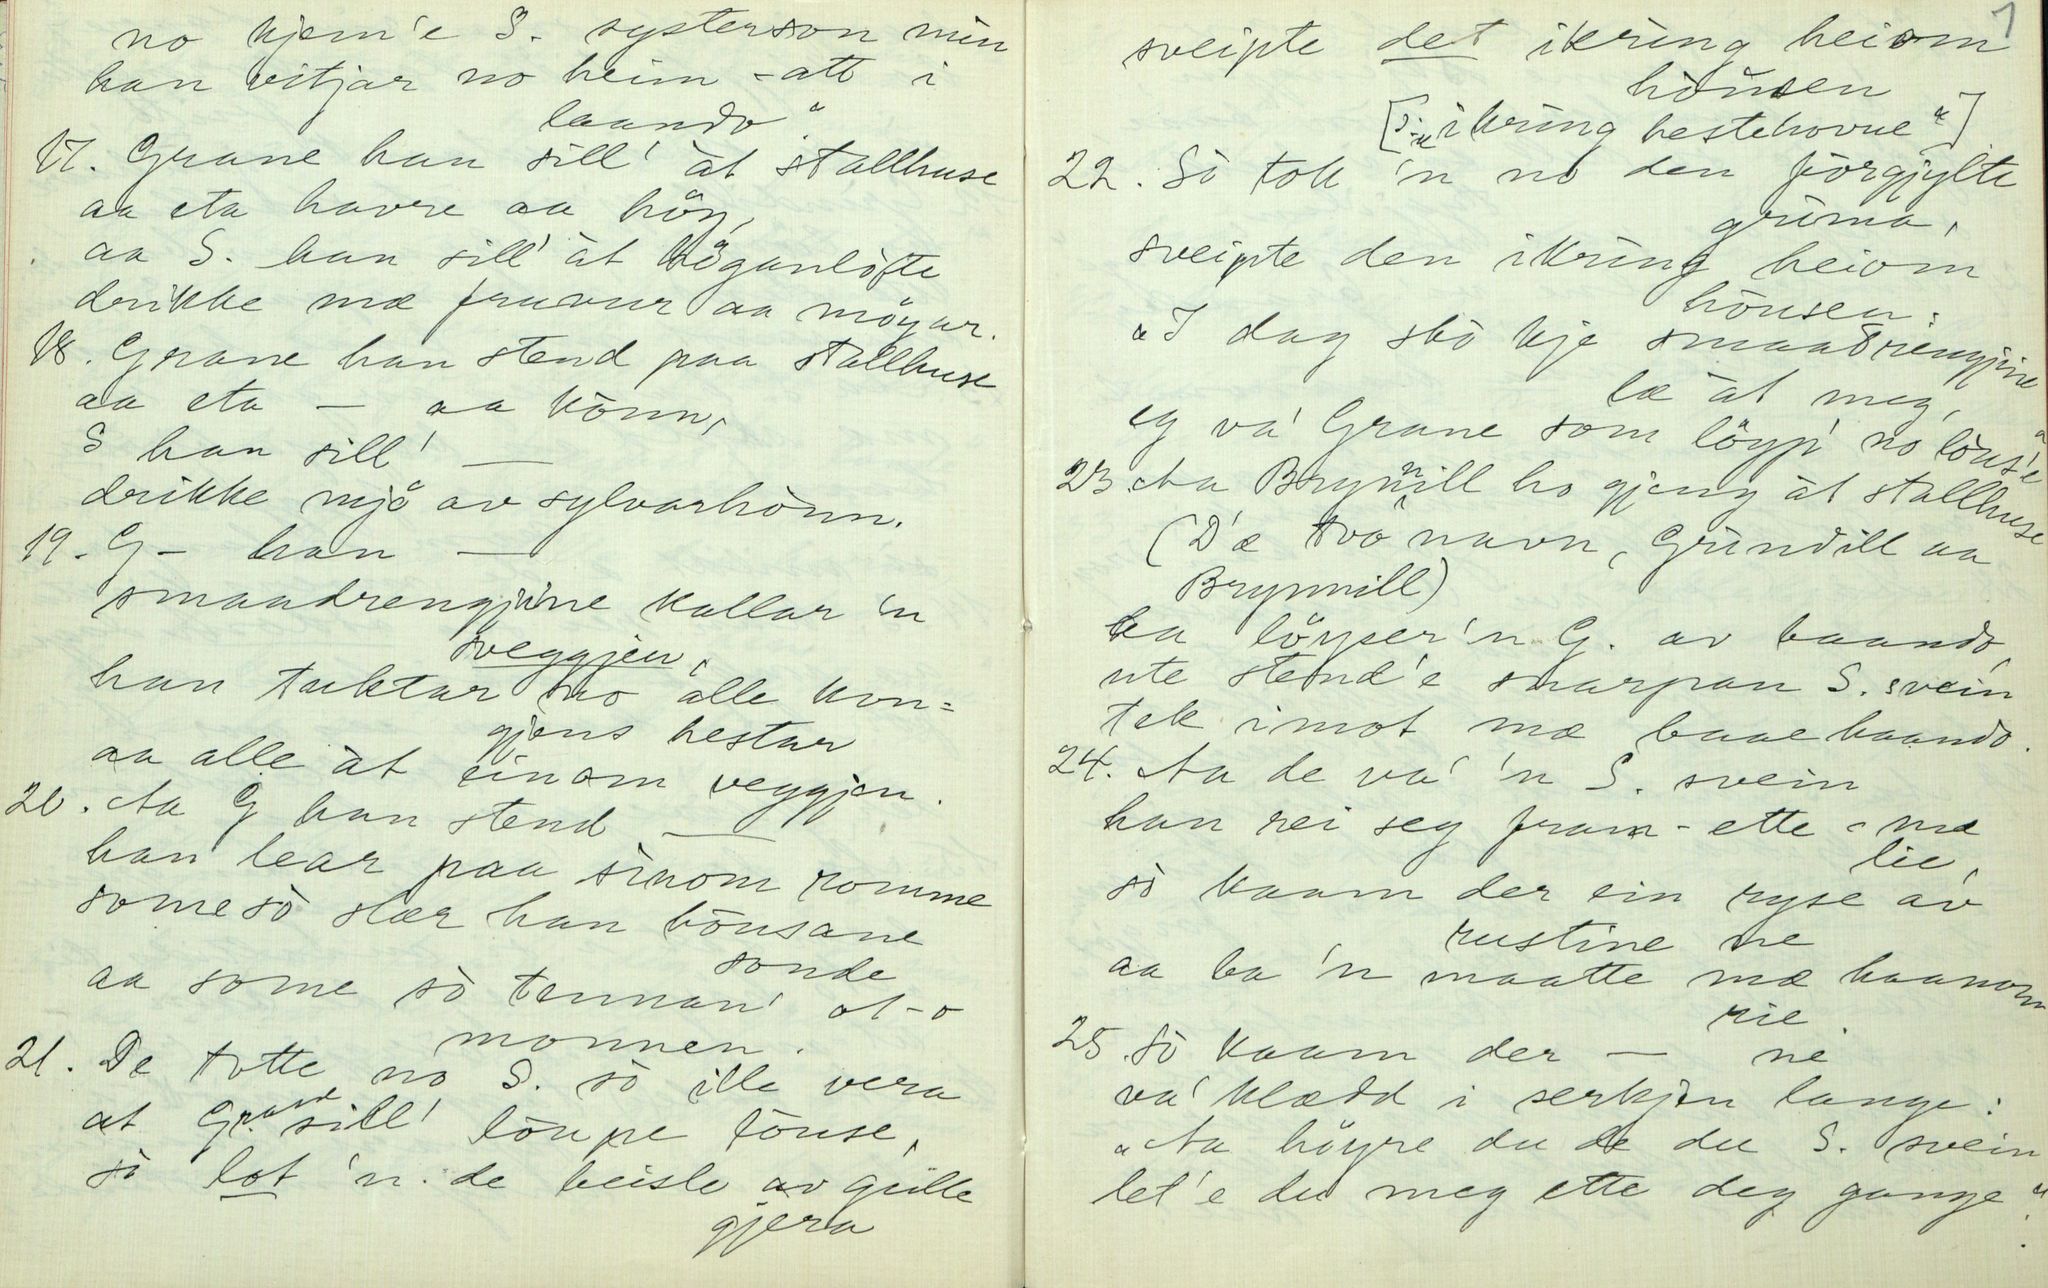 no kjem'e S. systerson min
han vitjar no heim-att i
laando"
17. Grane han sill' åt stallhuse
aa eta havre aa höy,
aa S. han sill' åt höganlòfte
drikke mæ fruvur aa möyar.
18. Grane han stend paa stallhuse
aa eta — aa kònn,
S han sill' —
drikke mjö av sylvarhònn.
19. G— han —
smaadrengjine kallar 'n
sveggjen,
han tuktar no alle kon=
gjens hestar
aa alle åt einom veggjen.
20. Aa G han stend —
han lear paa sinom romme
some sò slær han bònsane
sonde
aa some sò tennan' ot-o
monnen.
21. De totte no S. sò ille vera
at Grane sill' löupe löuse,
sò lot 'n de beisle av gulle
gjera
7
sveipte det ikring heiom
höusen
[S: "ikring hestehovue"]
22. Sò tok 'n no den förgjylte
grima,
sveipte den ikring heiom
höusen:
"I dag skò kje smaadrengjine
læ åt meg,
eg va' Grane som löyp' no löus'e"
23. Aa Brynnill ho gjeng åt stallhuse
(D'æ två navn, Grünill aa
Brynnill)
ba löyser 'n G. av baando
ute stend'e snarpan S. svein
tek imot mæ baae haando.
24. Aa de va' 'n S. svein
han rei seg fram-ette-mæ
lie,
sò kaam der ein ryse av
rustine ne
aa ba 'n maatte mæ haanom
rie.
25. Sò kaam der — ne
va' klædd i serkjen lange:
"Aa höyre du de du S. svein
let'e du meg ette deg gange".